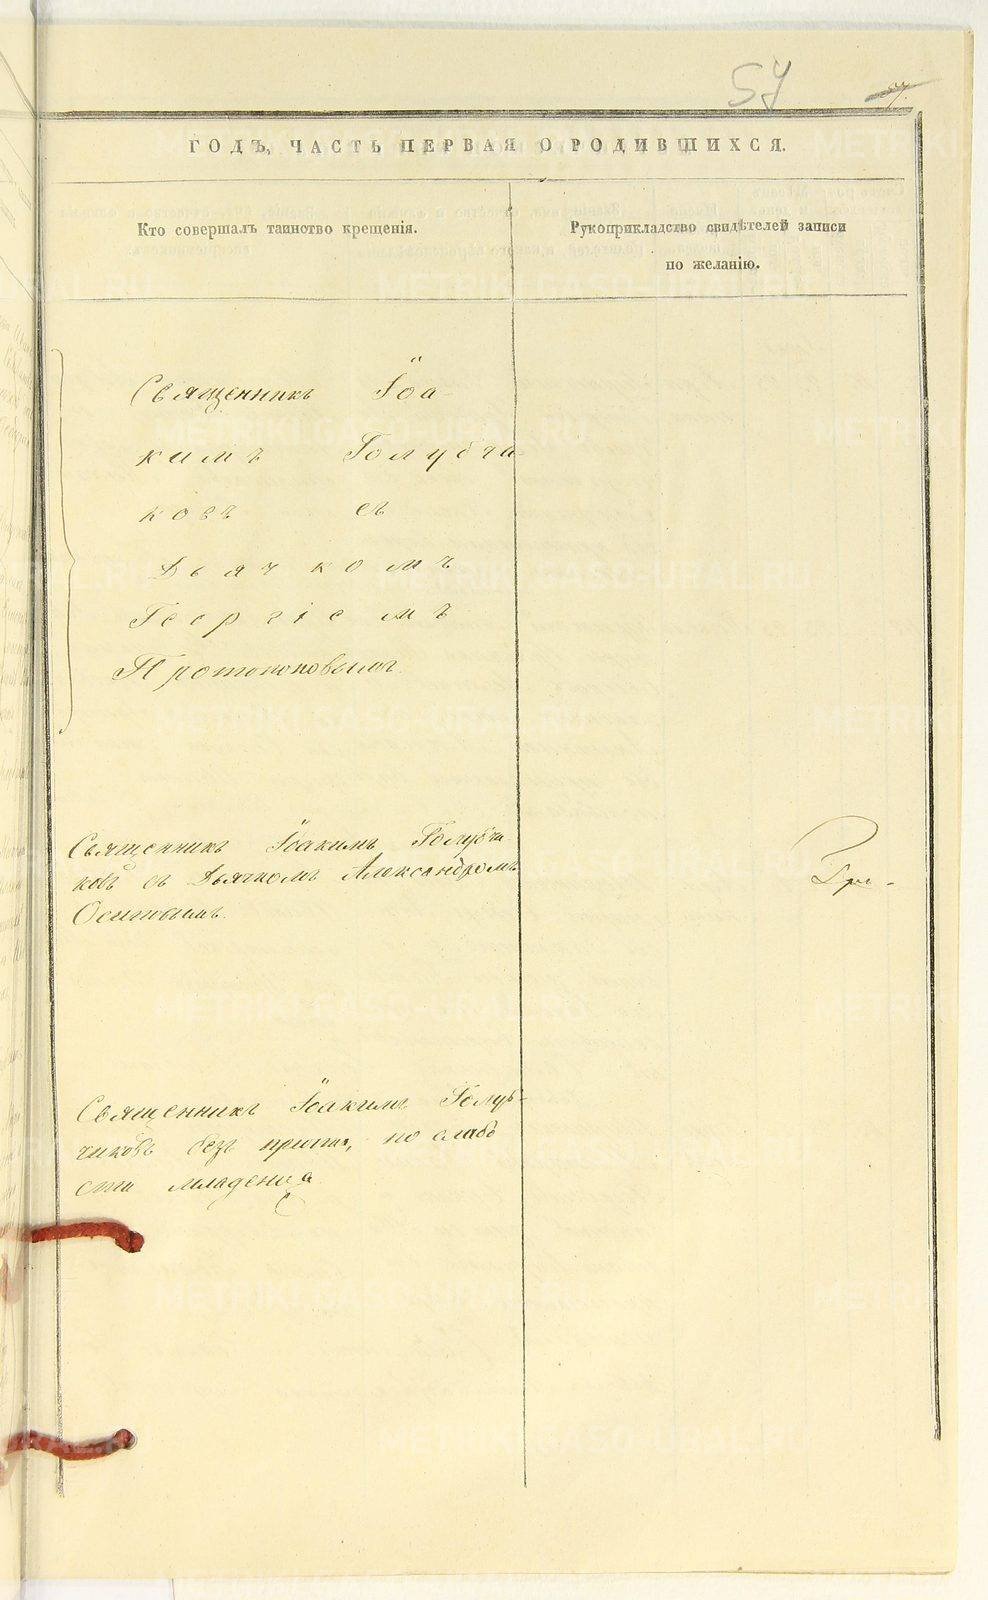 57
ГОДЪ, ЧАСТЬ ПЕРВАЯ О РОДИВШИХСЯ.
Кто совершалъ таинство крещенія.
Рукоприкладство свидѣтелей записи
по желанію.
Священникъ Іоа-
кимъ Голубчи-
ковъ съ
Дьячкомъ
Георгіемъ
Протопоповымъ.
Священникъ Іоакимъ Голубчи
ковъ съ Дьячкомъ Александромъ
Осиповымъ.
Священникъ Іоакимъ Голуб-
чиковъ безъ причта, по слабо
сти младенца
METRIKI.GASO-URAL.RU